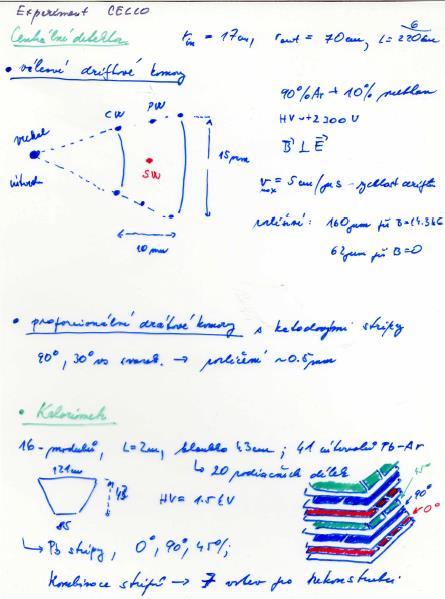 Experiment CELLO
6
Centrální detektor
r_in = 17cm, r_out = 70cm, L = 220cm
• válcové driftové komory
90% Ar + 10% methan
CW PW
HV ~ +2300 V
vrchol
B ⊥ E
15 mm
SW
v_max = 5cm/μs - rychlost driftu
10 mm
rozlišení: 160μm při B=14.3kG
62μm při B=0
• proporcionální drátové komory s katodovými stripy
90°, 30° vs → rozlišení ~0.5mm
• Kalorimetr
16-modulů, L=2m, hloubka 43cm; 41 Pb-Ar
↳ 20 radiačních délek
121cm
43
HV = 1.5 kV
85
45°
90°
0°
↳ Pb stripy, 0°, 90°, 45°;
Kombinace stripů → 7 vrstev po rekonstrukci